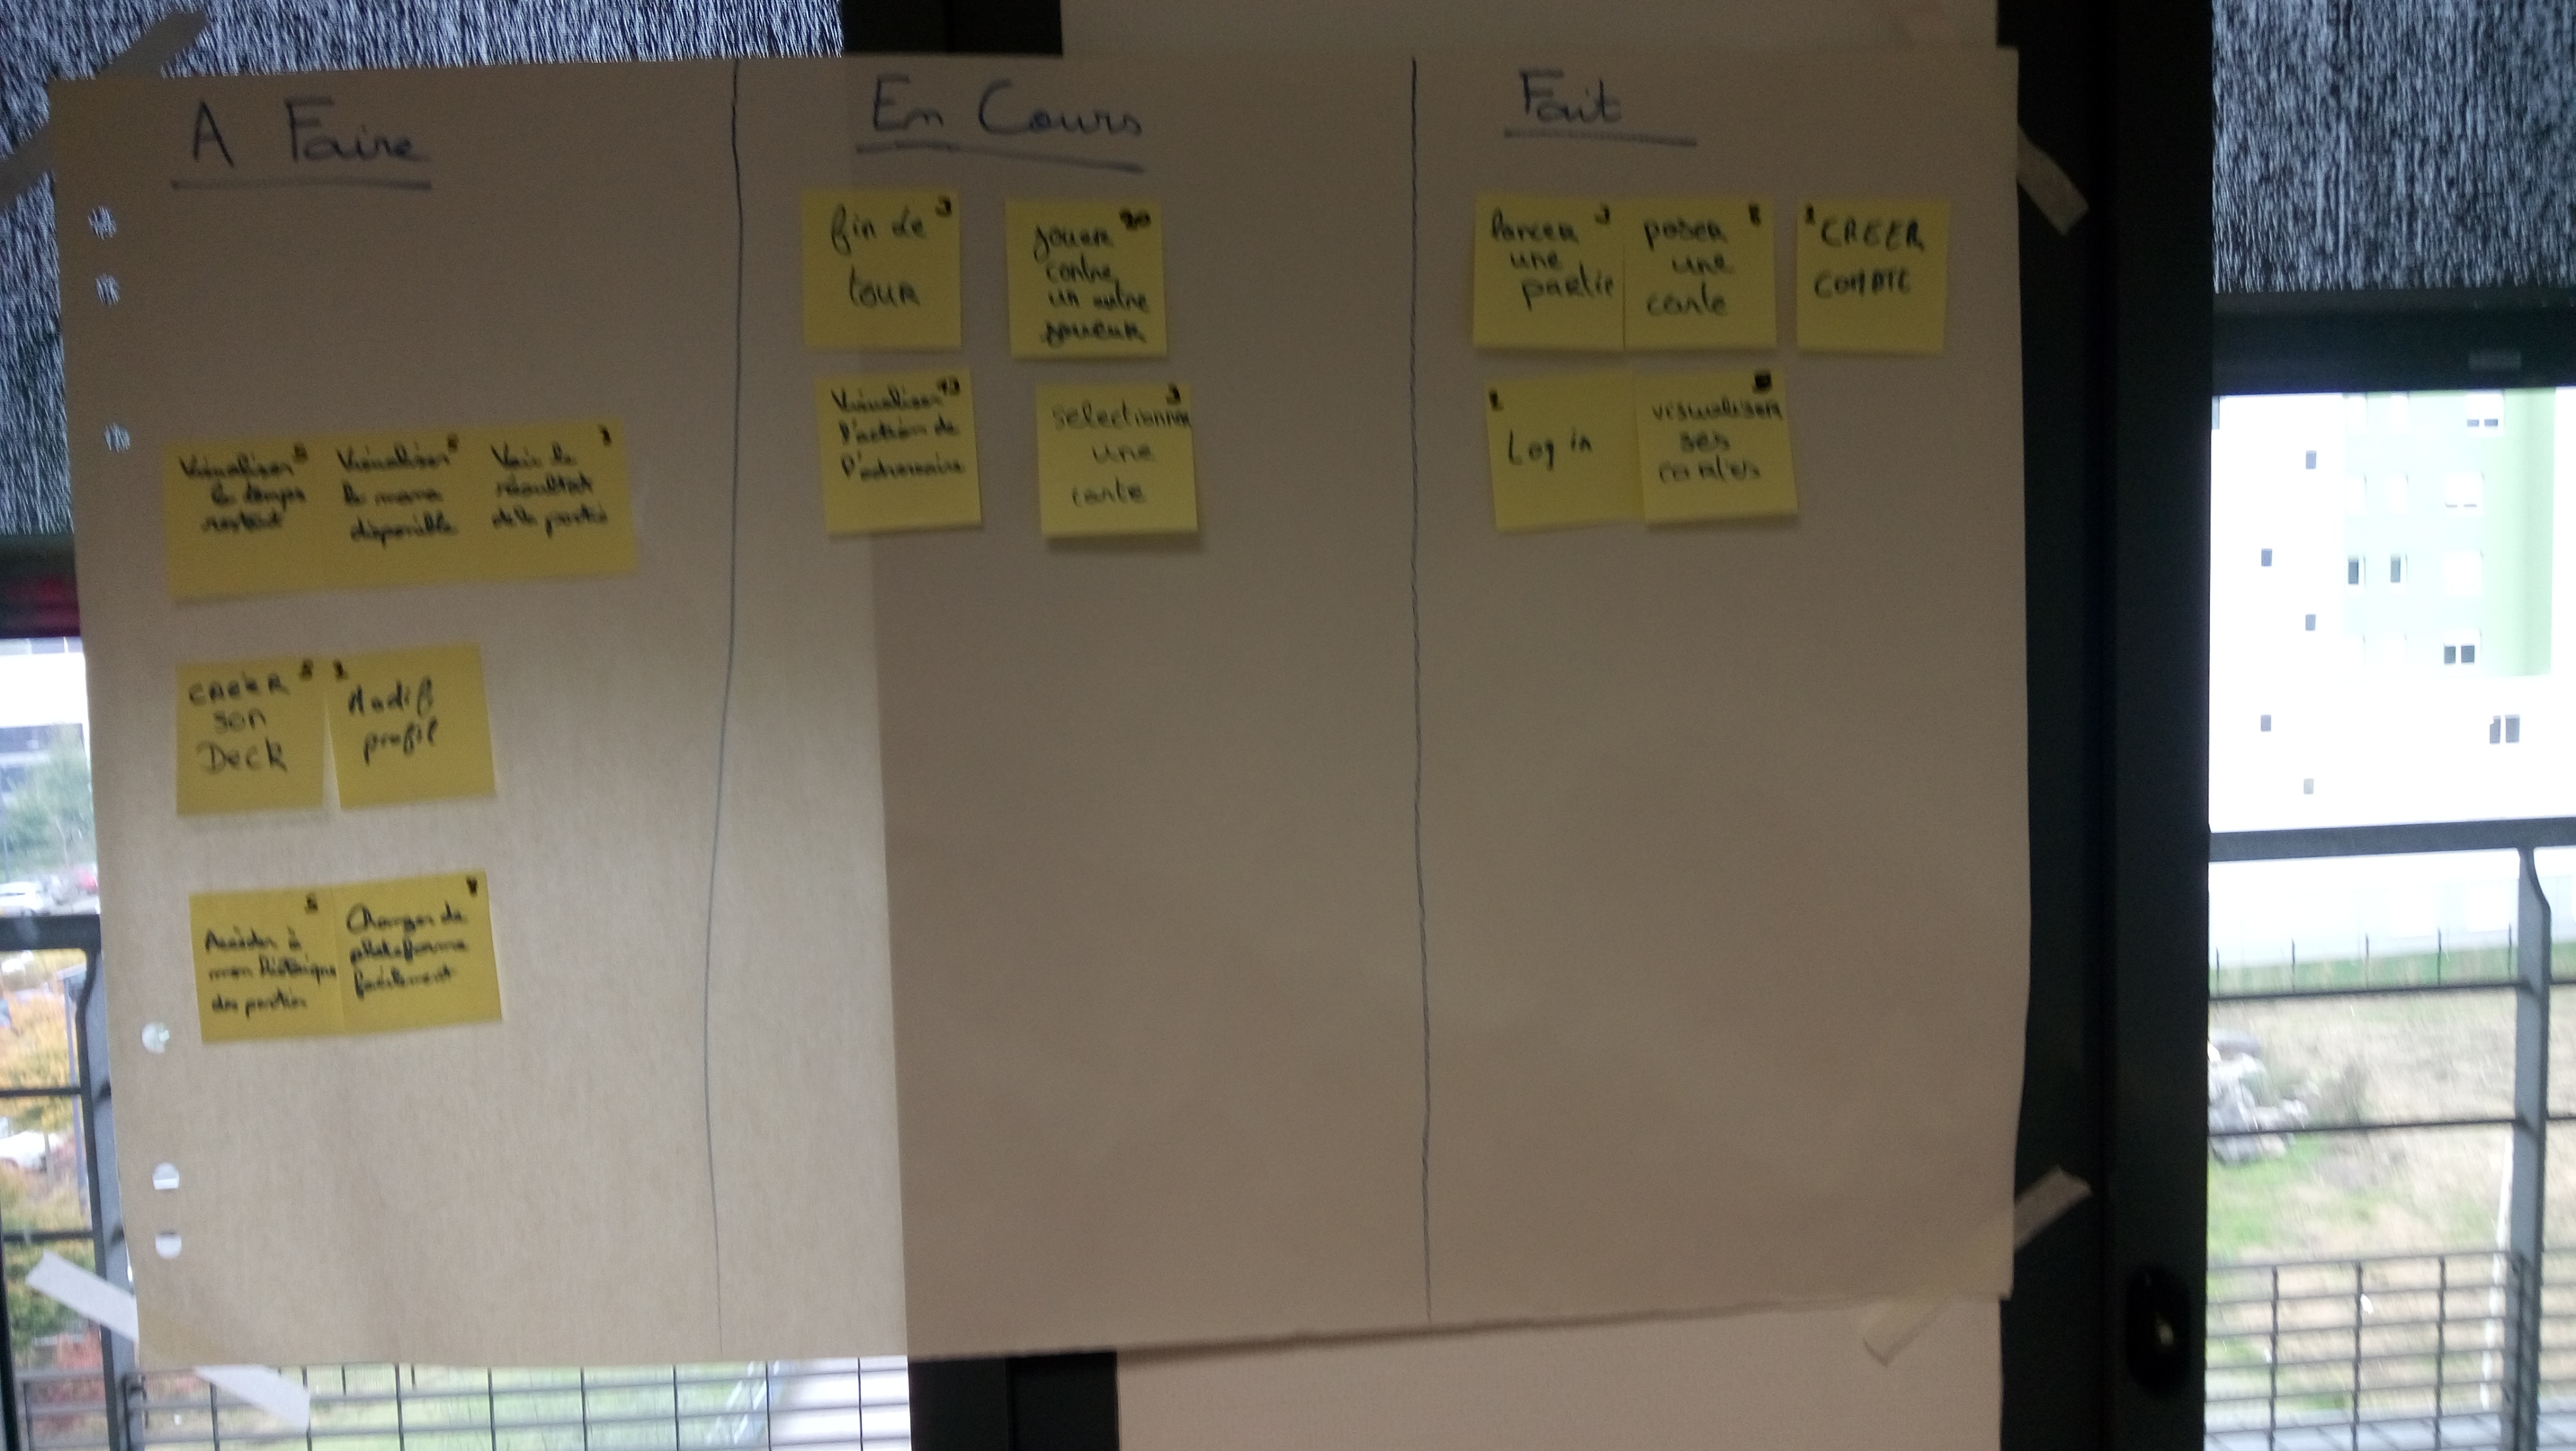 A Faire
En Cours
Fait
Visualiser
le temps
restant
Visualiser
le mana
disponible
Voir le
résultat
de la partie
3
CRÉER
son
Deck
Modif
profil
5
Accéder à
mon historique
des parties
Changer de
plateforme
facilement
3
fin de
tour
20
jouer
contre
un autre
joueur
13
Visualiser
l'action de
l'adversaire
3
selectionner
une
carte
3
lancer
une
partie
8
poser
une
carte
CREER
COMPTE
Log in
visualiser
ses
cartes